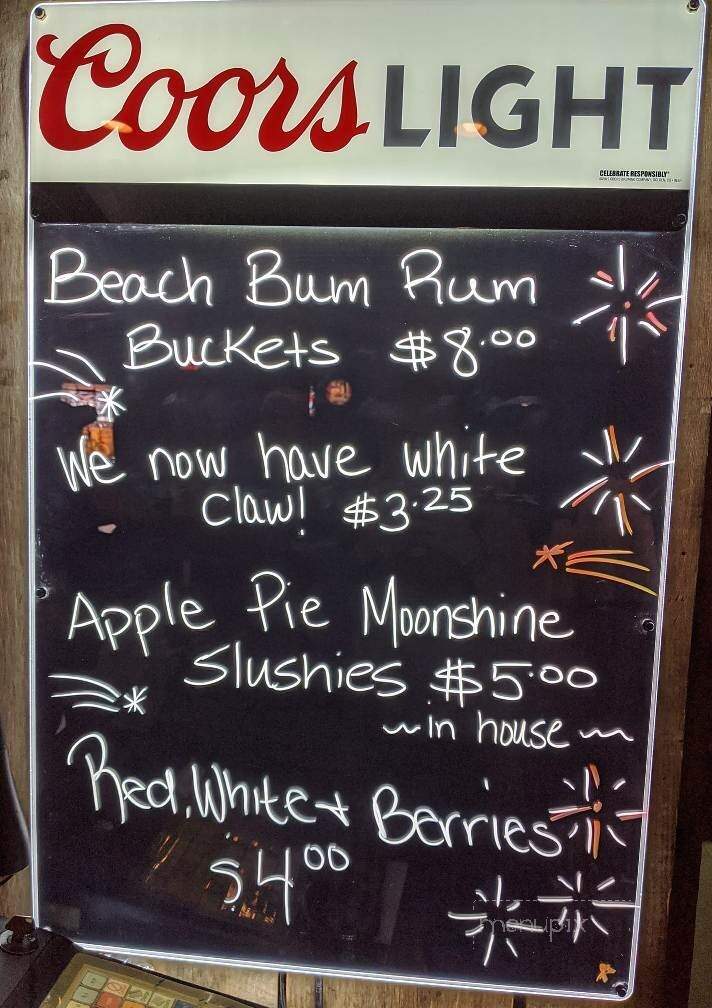 Coors LIGHT
CELEBRATE RESPONSIBLY
Beach Bum Rum
Buckets $8.00
We now have white
claw! $3.25
Apple Pie Moonshine
Slushies $5.00
~in house~
Red, White + Berries
$4.00
menupix